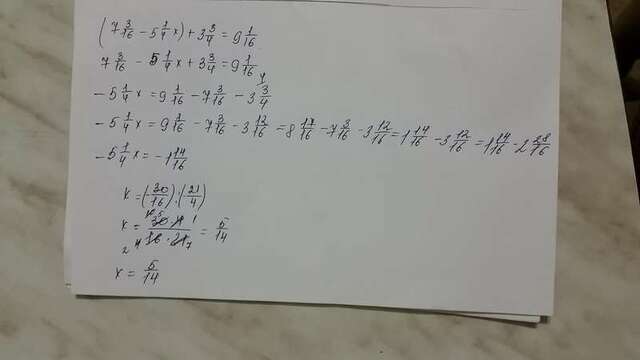 (7 3/16 - 5 1/4 x) + 3 3/4 = 9 1/16
7 3/16 - 5 1/4 x + 3 3/4 = 9 1/16
-5 1/4 x = 9 1/16 - 7 3/16 - 3 3/4
-5 1/4 x = 9 1/16 - 7 3/16 - 3 12/16 = 8 17/16 - 7 3/16 - 3 12/16 = 1 14/16 - 3 12/16 = 1 14/16 - 2 28/16
-5 1/4 x = -1 14/16
x = (30/16) : (21/4)
x = 30 · 4 / 16 · 21 = 5/14
x = 5/14